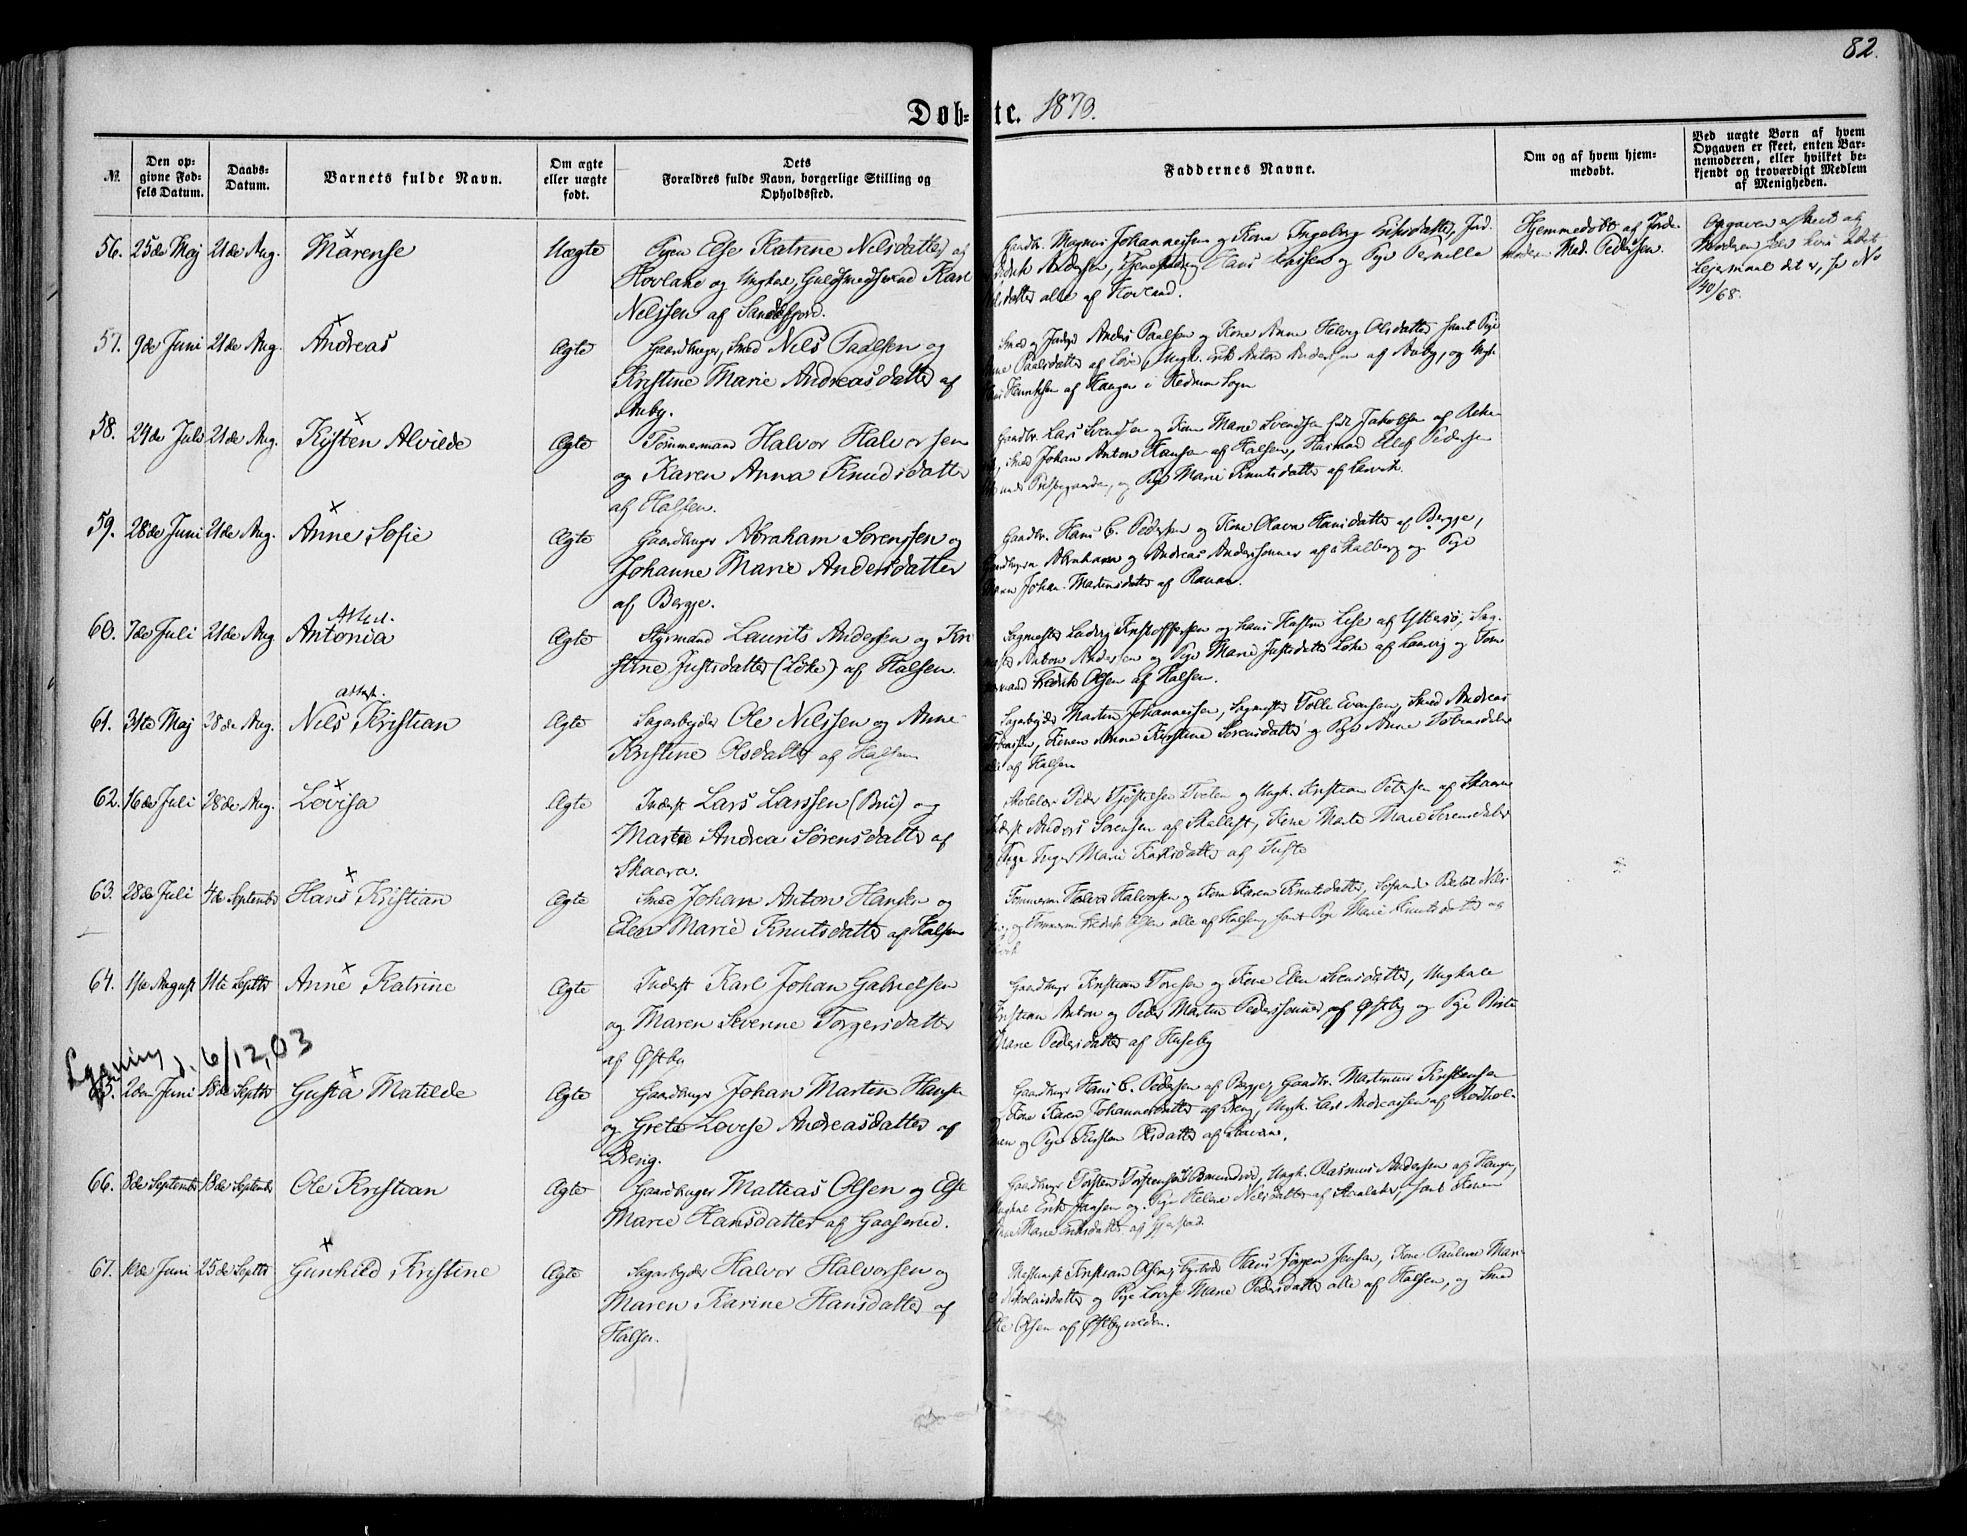 82.
Døb=te. 1870.
№.
Den op=
givne Fød=
sels Datum.
Daabs=
Datum.
Barnets fulde Navn.
Om ægte
eller uægte
født.
Dets
Forældres fulde Navn, borgerlige Stilling og
Opholdssted.
Faddernes Navne.
Om og af hvem hjem=
medøbt.
Ved uægte Børn af hvem
Opgaven er skeet, enten Bar=
nemoderen, eller hvilket be=
kjendt og troværdigt Medlem
af Menigheden.
56. 25de Maj 21de Aug. Marense Uægte Pigen Else Katrine Nilsdatter af
Hovland og Ungkarl, Guldsmedsvend Karl
Nilssen af Sandefjord.
Gaardbr. Magnus Johannessen og Kone Ingeborg
Andersen, Hans og Pige Pernille
alle af Hovland.
Hjemmedøbt af Jorde
moder Mad. Pedersen.
Opgaven er skeet af
Moderen
Lejermaal det er, se No
40/68.
57. 9de Juni 21de Aug. Andreas Ægte Gaardbruger, Smed Nils Paalsen og
Kristine Marie Andreasdatter af
Auby.
Smed og Anders Paalsen og Kone Anne Helvig Olsdatter samt Pige
Paalsdatter af Ungk. Erik Anton Andersen af Auby, og Ungk.
af Haugen i Hedrum Sogn
58. 24de Juli 21de Aug. Kirsten Alvilde Ægte Tømmermand Halvor Halvorsen
og Karen Anna Knudsdatter
af Halsen.
Gaardbr. Lars Svendsen og Kone Marie Svendsen født Jakobsen af
Smed Johan Anton Hansen af Halsen, Ellef Pedersen
og Pige Marie Knutsdatter af Larvik.
59. 28de Juni 21de Aug. Anne Sofie Ægte Gaardbruger Abraham Sørenssen og
Johanne Marie Andersdatter
af Bergje.
Gaardbr. Hans C. Pedersen og Kone Olava Hansdatter af Bergje,
Abraham og Andreas Anderssønner af Skalberg og Pige
Johan. Martinsdatter af
60. 7de Juli 21de Aug. Attest. Antonia Ægte Styrmand Laurits Andersen og Kri
stine Justsdatter (Løke) af Halsen.
Sagmester Ludvig Kristoffersen og hans Hustru Lise af Ytterø, Sag
mester Anton Andersen og Pige Marie Justsdatter Løke af Laurvig og Tøm
mermand Fredrik Olsen af Halsen.
61. 31te Maj 28de Aug. Attest. Nils Kristian Ægte Sagarbejder Ole Nilssen og Anne
Kristine Olsdatter af Halsen
Sagarbejder Martin Johannessen, Sagmester Tolle Evensen, Smed Andreas
Konen Anne Kirstine Sørensdatter og Pige Anne
alle af Halsen
62. 16de Juli 28de Aug. Lovisa Ægte Inderst Lars Larssen (Bru) og
Marte Andrea Sørensdatter af
Skaara.
Peder Tveten og Ungk. Kristian Petersen af Skaara
Inderst Anders Sørensen af Kone Marte Marie Sørensdatter
og Pige Inger Marie af
63. 28de Juli 4de September Hans Kristian Ægte Smed Johan Anton Hansen og
Elen Marie Knutsdatter af Halsen
Tømmerm. Halvor Halvorsen og Kone Karen Knutsdatter,
og Tømmerm. Fredrik Olsen alle af Halsen, samt Pige Marie Knutsdatter af
64. 1ste August 11te Septbr Anne Katrine Ægte Inderst Karl Johan Gabrielsen
og Maren Severine Torgersdatter
af Østby
Gaardbruger Kristian Toresen og Kone Elen Svensdatter, Ungkarle
Kristian Anton og Peder Martin Pederssønner af Østby og Pige Berte
Marie Pedersdatter af Huseby
d. 6/12, 03
65. 2den Juni 18de Septbr Gusta Matilde Ægte Gaardbruger Johan Martin Hansen
og Grete Lovise Andreasdatter af
Dreng.
Gaardbruger Hans C. Pedersen af Bergje, Gaardbr. Martinius Kristensen
og Kone Karen Johannesdatter af Dreng, Ungk. Carl Andreassen af Rødhol=
men og Pige Kirsten Olsdatter af Stavern.
66. 3de September 18de September Ole Kristian Ægte Gaardbruger Mathias Olsen og Else
Marie Hansdatter af Gaaserud.
Gaardbruger Torsten Torstensen Ungk. Rasmus Andersen af Haugen,
Ungkarl Erik Jansen og Pige Helene Nilsdatter af samt Konen
Marie af
67. 10de Juni 25de Septbr Gunhild Kristine Ægte Sagarbejder Halvor Halvorsen og
Maren Karine Hansdatter af
Halsen.
Kristian Olsen, Hans Jørgen Jensen, Kone Pauline Mar
Nikolaisdatter og Pige Lovise Marie Pedersdatter alle af Halsen, og Smed
Ole Olsen af Østbyveden.